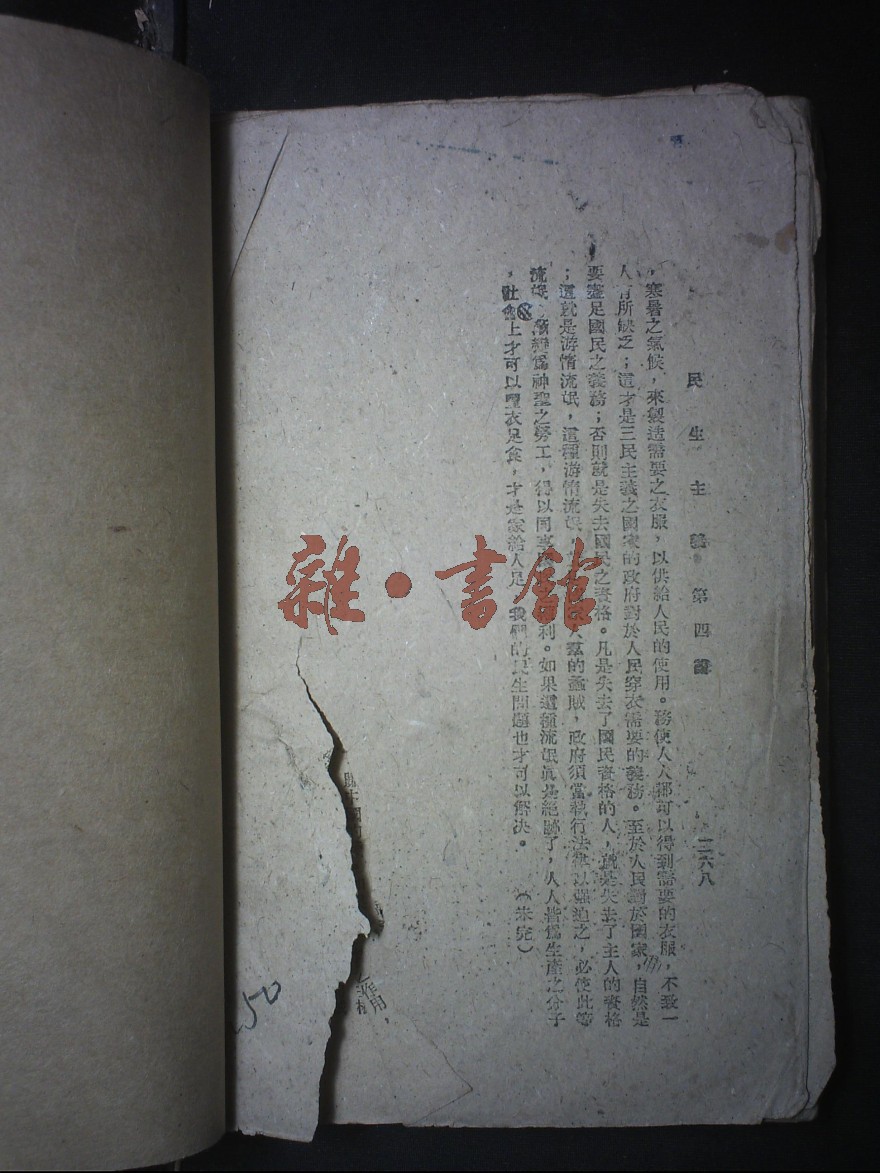 民生主義第四講 二六八
，寒暑之氣候，來製造需要之衣服，以供給人民的使用。務使人人都可以得到需要的衣服，不致一
人有所缺乏；這才是三民主義之國家的政府對於人民穿衣需要的義務。至於人民對於國家，自然是
要盡足國民之義務；否則就是失去國民之資格。凡是失去了國民資格的人，就是失去了主人的資格
；這就是游惰流氓，這種游惰流氓，人羣的蠹賊，政府須當執行法律以强迫之，必使此等
流氓，漸變爲神聖之勞工，得以同享利。如果這種流氓眞是絕跡了，人人皆爲生產之分子
，社會上才可以豐衣足食，才是家給人足，我們的民生問題也才可以解決。（未完）
作用，
50
雜·書館